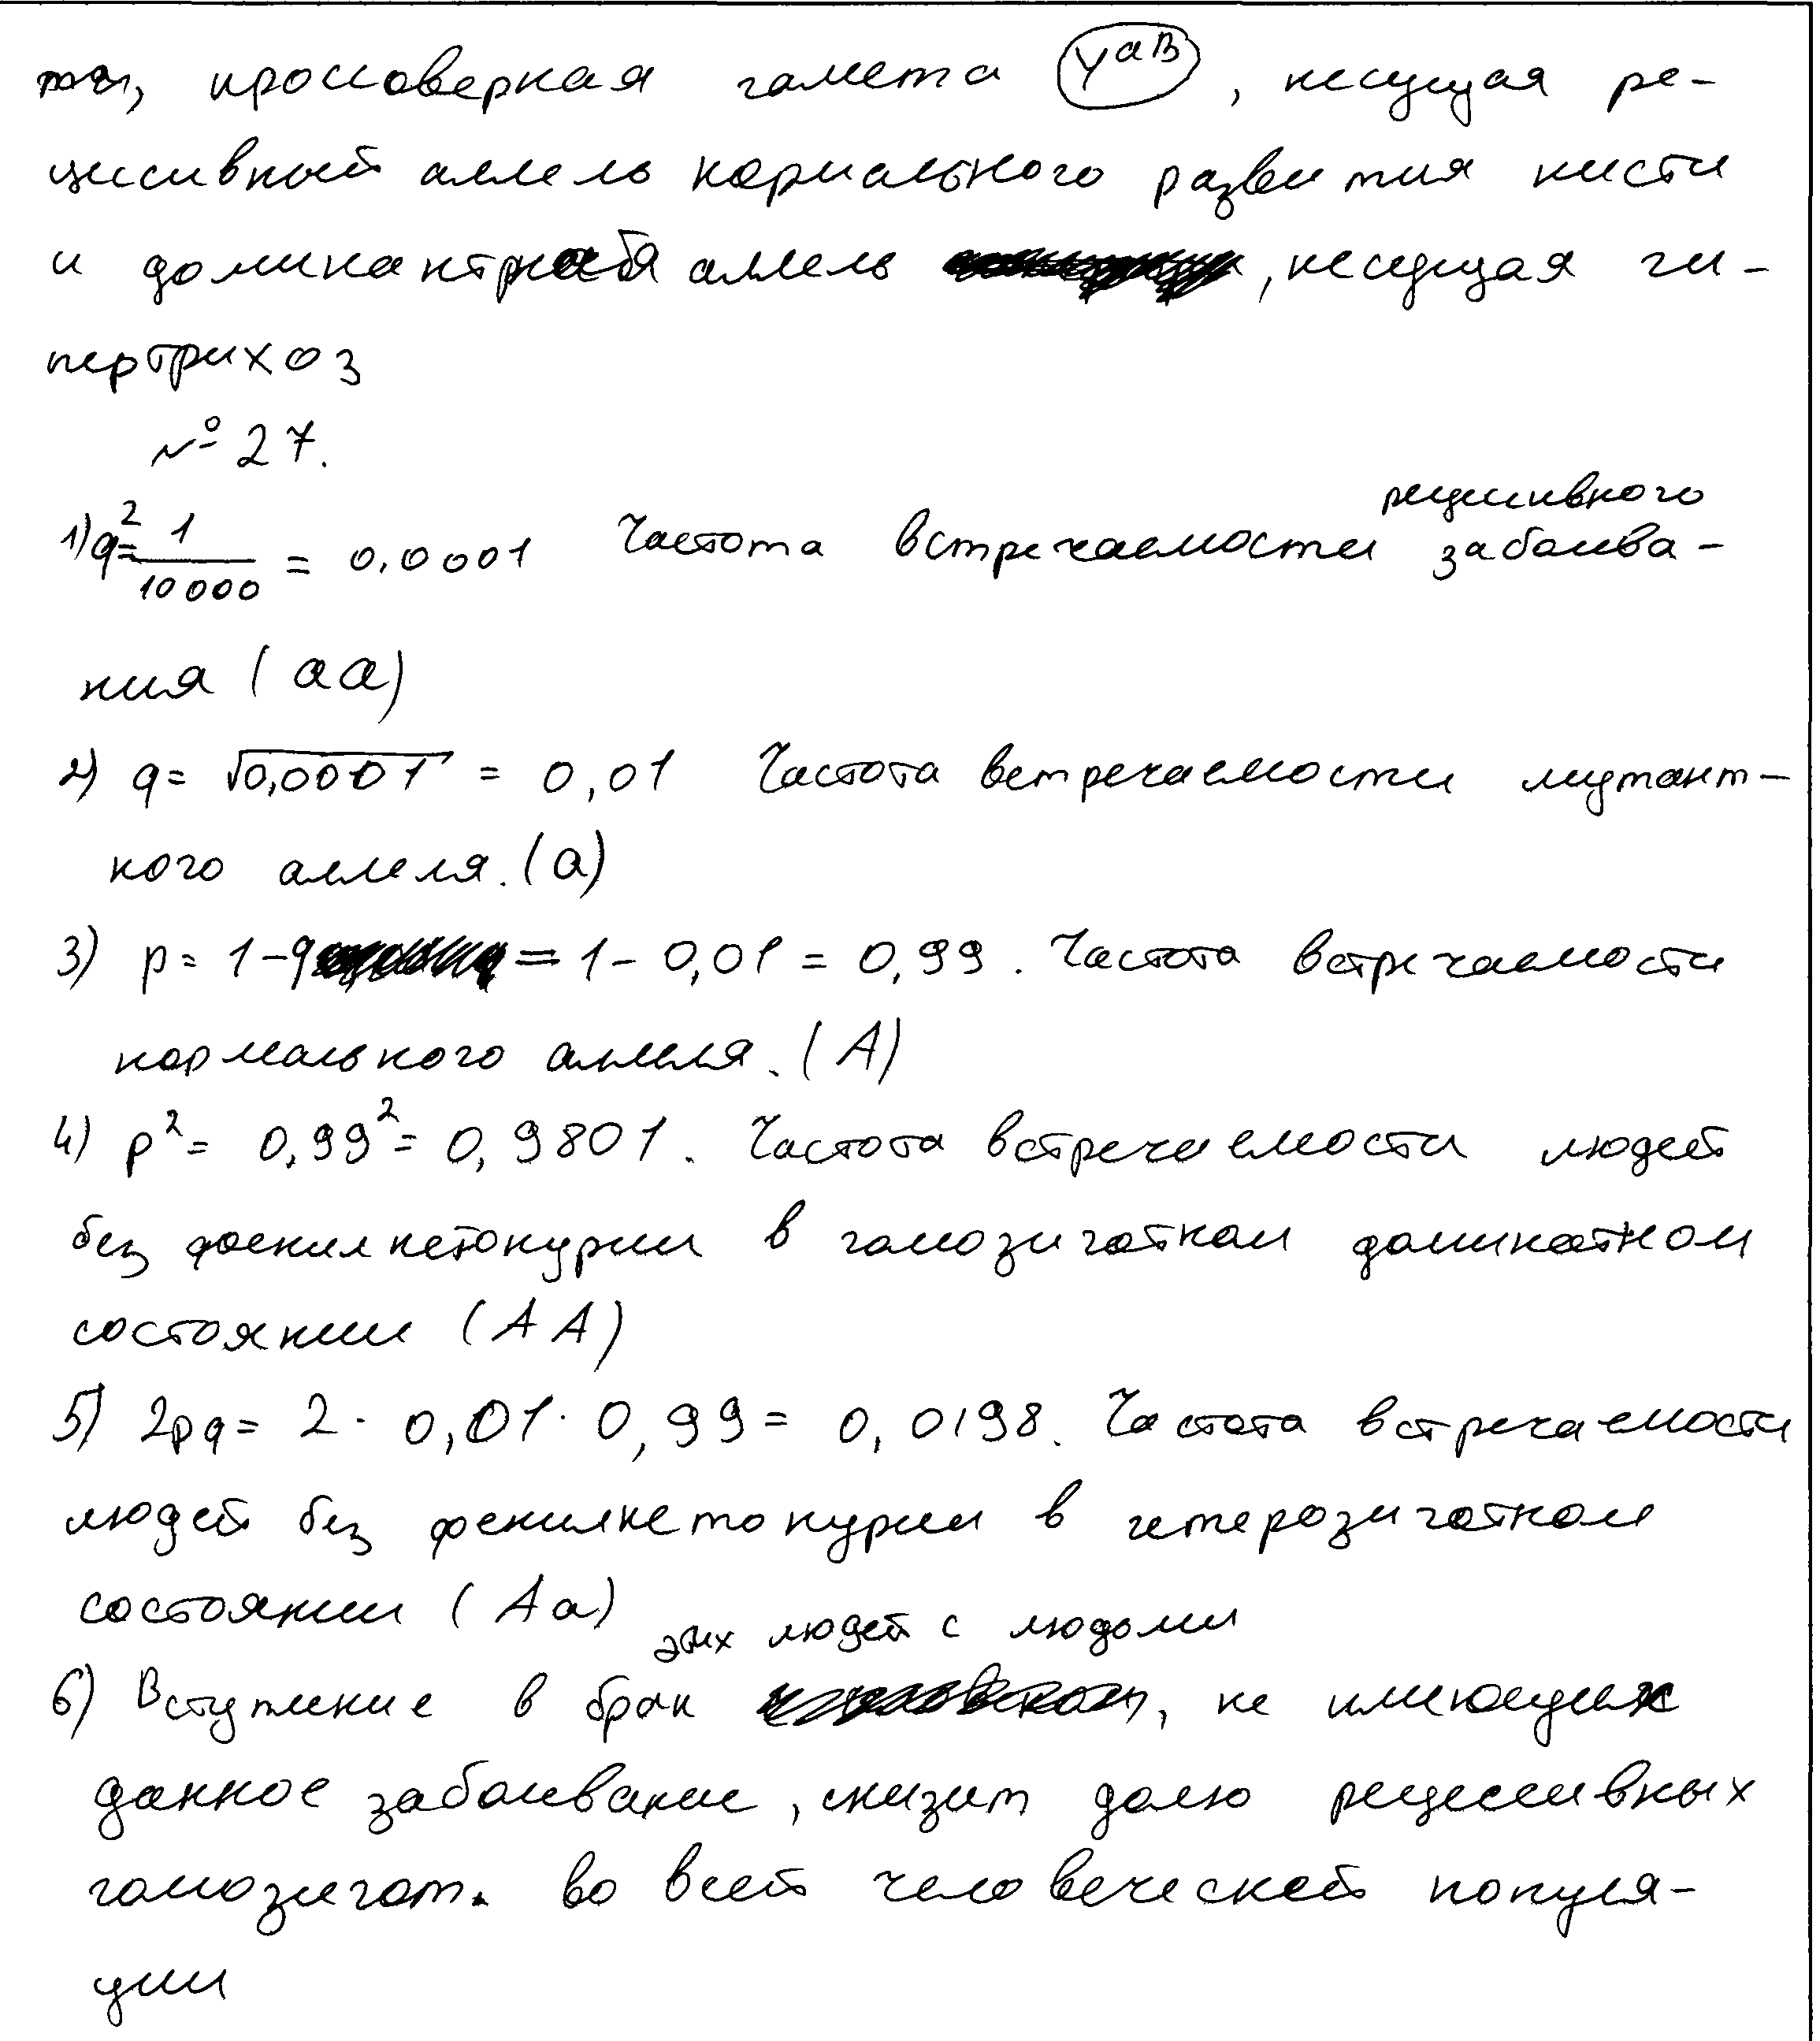 та, кроссоверная гамета Y^aB, несущая ре-
цисивный аллель нормального развития кисти
и доминантный аллель , несущая ги-
пертрихоз
№ 27.
1) q² = 1/10000 = 0,0001 Частота встречаемости рецисивного забалива-
ния (aa)
2) q = √0,0001 = 0,01 Частота встречаемости мутант-
ного аллеля. (a)
3) p = 1 - q = 1 - 0,01 = 0,99. Частота встречаемости
нормального аллеля. (A)
4) p² = 0,99² = 0,9801. Частота встречаемости людей
без фенилкетонурии в гомозиготном доминатном
состоянии (AA)
5) 2pq = 2 · 0,01 · 0,99 = 0,0198. Частота встречаемости
людей без фенилкетонурии в гетерозиготном
состоянии (Aa)
6) Вступление в брак этих людей с людьми, не имеющих
данное забаливание, снизит долю рецессивных
гомозигот. во всей человеческой популя-
ции